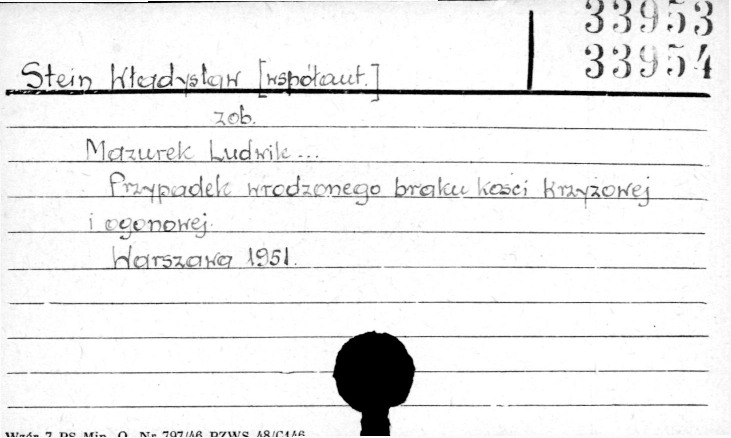 33953
33954
Stein Władysław [współaut.]
zob.
Mazurek Ludwik...
Przypadek wrodzonego braku kości krzyżowej
i ogonowej.
Warszawa 1951.
Wzór 7 PS Min. O. Nr 797/46 PZWS 48/C146